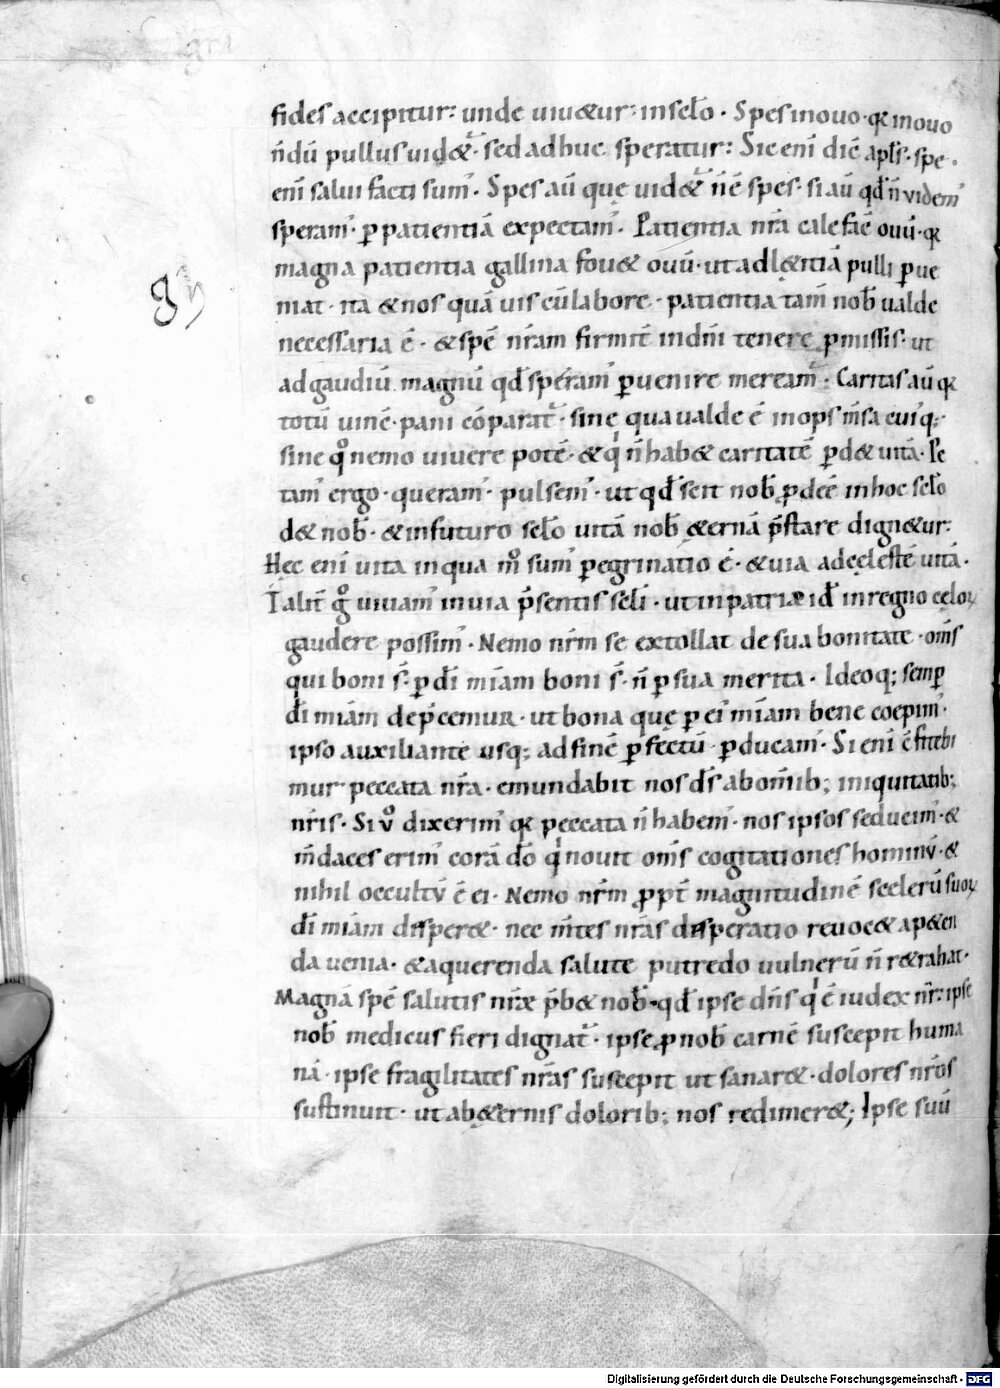 fides accipitur: unde uiu&ur: in sćlo · Spes in ouo · q̄r in ouo
n̄dū pullus uid&̃ · sed adhuc speratur: Sic eni̅ dic̄ apl̄s · spe ·
eni̅ salui facti sum̓ · Spes aū quę uid&̃ n̄ē spes · si aū qd̄ n̄ videm̓
speram̓ · ꝑ patientiā expectam̓ · Patientia nr̄a calefac̄ ouū · q̄r
magna patientia gallina fou& ouū · ut ad lę&itiā pulli ꝑue
niat · ita & nos quāuis cū labore · patientia tam̄ nob̄ ualde
necessaria ē · & spē nr̄am firmit̄ in dn̄i tenere ꝓmissis · ut
ad gaudiū magnū qd̄ speram̓ ꝑuenire meream̃ · Caritas aū q̄r
totū uinc̄ · pani cōparat̃ · sine qua ualde ē inops m̄sa cuiq;
sine qͦ nemo uiuere potē · & qͥ n̄ hab& caritatē ꝑd& uitā · Pe
tam̓ ergo · queram̓ · pulsem̓ · ut qd̄ scit nob̄ ꝓdeē in hoc sćlo
d& nob̄ · & in futuro sćlo uitā nob̄ ę&ernā p̄stare dign&ur:
Hęc eni̅ uita in qua mͦ sum̓ peregrinatio ē · & uia ad cęlestē uitā ·
Talit̄ gͦ uiuam̓ in uia p̄sentis sćli · ut in patria id̄ in regno cęloꝝ
gaudere possim̓ · Nemo nr̄m se extollat de sua bonitate · om̄s
qui boni s̄ · ꝑ dī miā̄m boni s̄ · n̄ ꝑ sua merita · Ideoq; semꝑ
dī mīam dep̄cemur · ut bona quę ꝑ ei̓ mīam bene coepim̓ ·
ipso auxiliante usq; ad finē ꝑfectū ꝑducam̓ · Si eni̅ cfitebi
mur peccata nr̄a · emundabit nos dś ab om̄ib; iniquitatib;
nr̄is · Si ṽ dixerim̓ q̄r peccata n̄ habem̓ · nos ipsos seducim̓ · &
m̄daces erim̓ corā dō qͥ nouit om̄s cogitationes hominū · &
nihil occultv ē ei · Nemo nr̄m ꝓpt̄ magnitudinē scelerū suoꝝ
dī mīam disper& · nec m̄tes nr̄as disperatio reuoc& a p&en
da uenia · & a querenda salute putredo uulnerū n̄ r&rahat ·
Magnā spē salutis nr̄æ p̄b& nob̄ · qd̄ ipse dn̄s qͥ ē iudex nr̄: ipse
nob̄ medicus fieri dignat̃ · ipse ꝓ nob̄ carnē suscepit huma
nā · ipse fragilitates nr̄as suscepit ut sanar& · dolores nr̄os
sustinuit · ut ab ę&ernis dolorib; nos redimer&; Ipse suū
Digitalisierung gefördert durch die Deutsche Forschungsgemeinschaft - DFG